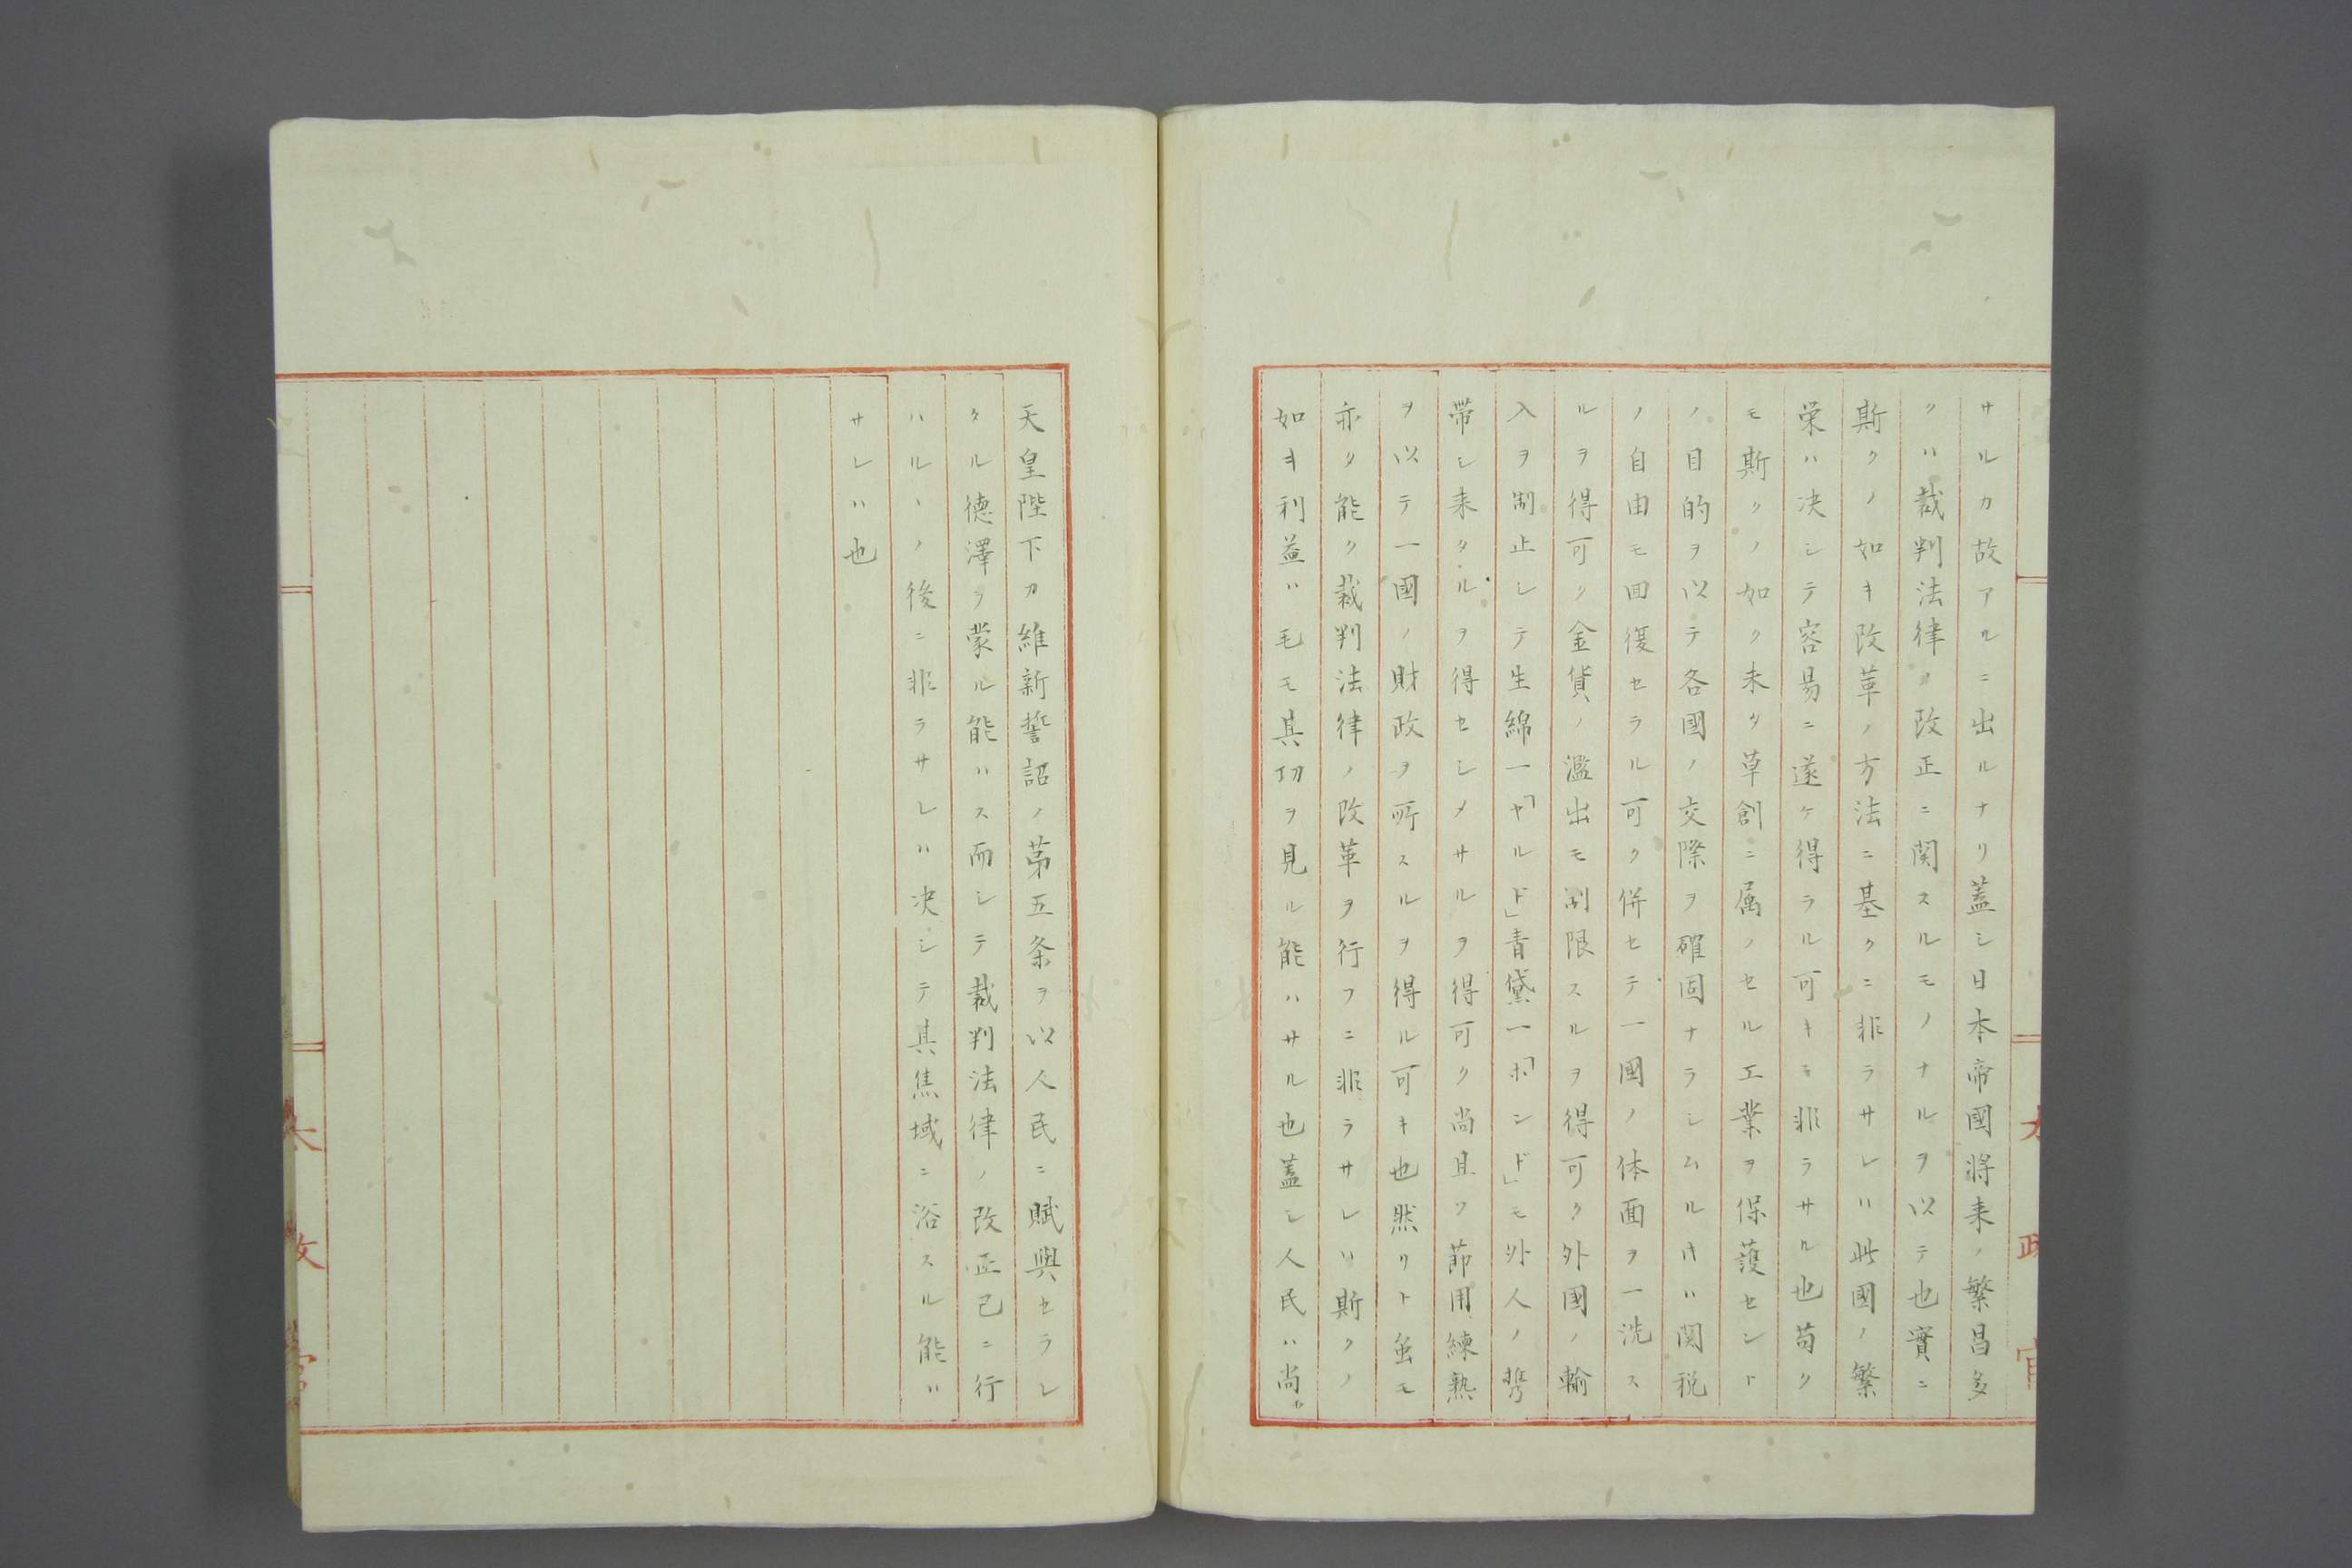 サルカ故アルニ出ルナリ蓋シ日本帝國将来ノ繁昌多
クハ裁判法律ヲ改正ニ関スルモノナルヲ以テ也實ニ
斯クノ如キ改革ノ方法ニ基クニ非ラサレハ此國ノ繁
栄ハ决シテ容易ニ遂ケ得ラル可キモ非ラサル也苟ク
モ斯クノ如ク未タ草創ニ属ノセル工業ヲ保護セント
ノ目的ヲ以テ各國ノ交際ヲ確固ナラシムルキハ関税
ノ自由モ回復セラル可ク併セテ一國ノ体面ヲ一洗ス
ルヲ得可ク金貨ノ濫出モ制限スルヲ得可ク外國ノ輸
入ヲ制止シテ生綿一「ヤルド」青黛一「ホンド」モ外人ノ携
帯シ来タルヲ得セシメサルヲ得可ク尚且ツ節用練熟
ヲ以テ一國ノ財政ヲ所スルヲ得ル可キ也然リト虽モ
亦タ能ク裁判法律ノ改革ヲ行フニ非ラサレハ斯クノ
如キ利益ハ毛モ其功ヲ見ル能ハサル也蓋シ人民ハ尚ホ
太政官
天皇陛下カ維新誓詔ノ第五条ヲ以人民ニ賦與セラレ
タル德澤ヲ蒙ル能ハス而シテ裁判法律ノ改正已ニ行
ハルヽノ後ニ非ラサレハ决シテ其焦域ニ浴スル能ハ
サレハ也
太政官